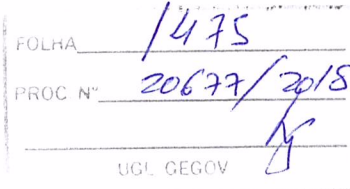 FOLHA 1475
PROC Nº 20677/2018
UGL GEGOV